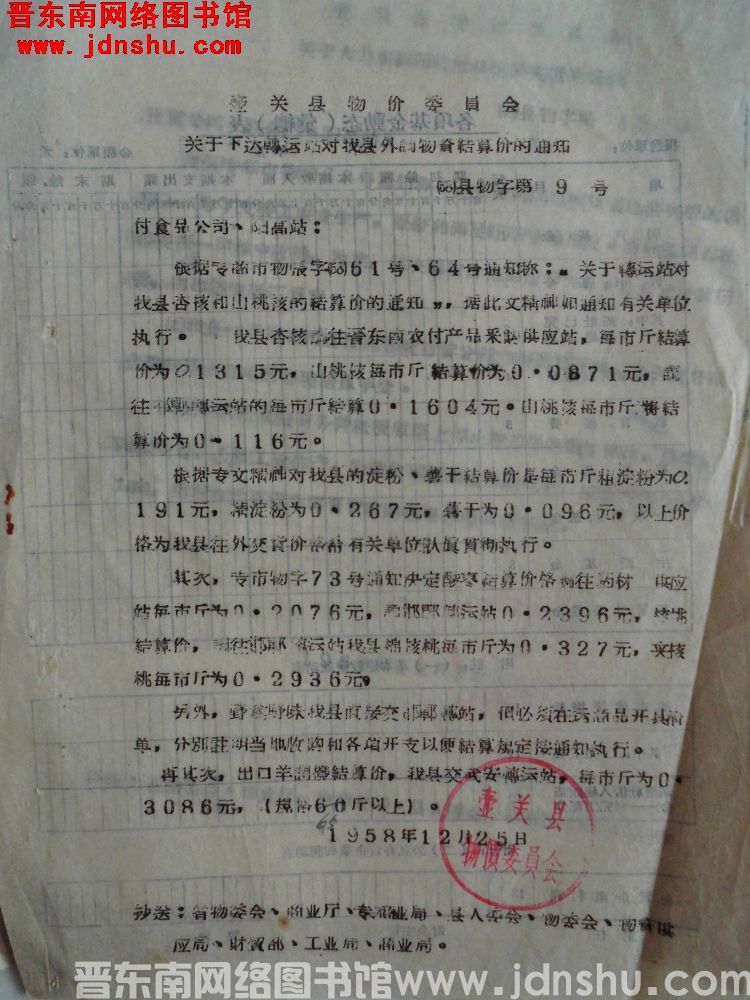 晋东南网络图书馆
www.jdnshu.com
壶关县物价委員会
关于下达轉运站对我县外調物資結算价的通知
(58)县物字第 9 号
付食品公司、阳高站:
根据专临市物張字(58)61号、64号通知称:“关于轉运站对
我县杏核和山桃核的結算价的通知”,据此文精神如通知有关单位
执行。 我县杏核調往晋东南农付产品采購供应站,每市斤結算
价为0.1315元,山桃核每市斤結算价为0·0871元,調
往邯鄲轉运站的每市斤結算0·1604元。山桃核每市斤將結
算价为0·116元。
根据专文精神对我县的淀粉、薯干結算价是每市斤粗淀粉为0.
191元,精淀粉为0·267元,薯干为0·096元,以上价
格为我县往外交貨价格希有关单位認眞貫彻执行。
其次,专市物字73号通知决定酸枣結算价格調往葯材 供应
站每市斤为0·2076元,邯鄲轉运站0·2396元,核桃
結算价,調往邯鄲轉运站我县綿核桃每市斤为0·327元,夹核
桃每市斤为0·2936元。
另外,野禽野味我县直接交邯鄲轉站,但必須在送商品开具清
单,分别註明当地收购和各項开支以便結算規定按通知执行。
再其次,出口羊調撥結算价,我县交武安轉运站,每市斤为0·
3086元,(規格60斤以上)。
1958年12月25日
壶关县
物價委員会
抄送:省物委会、商业厅、专商业局、县人委会、物委会、物資供
应局、財貿部、工业局、商业局。
晋东南网络图书馆www.jdnshu.com